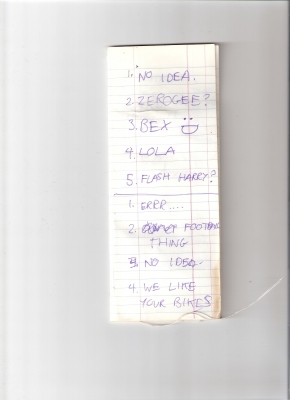 1. NO IDEA.
2. ZEROGEE?
3. BEX :D
4. LOLA
5. FLASH HARRY?
1. ERRR....
2. FOOTBALL
THING
3. NO IDEA..
4. WE LIKE
YOUR BIKES